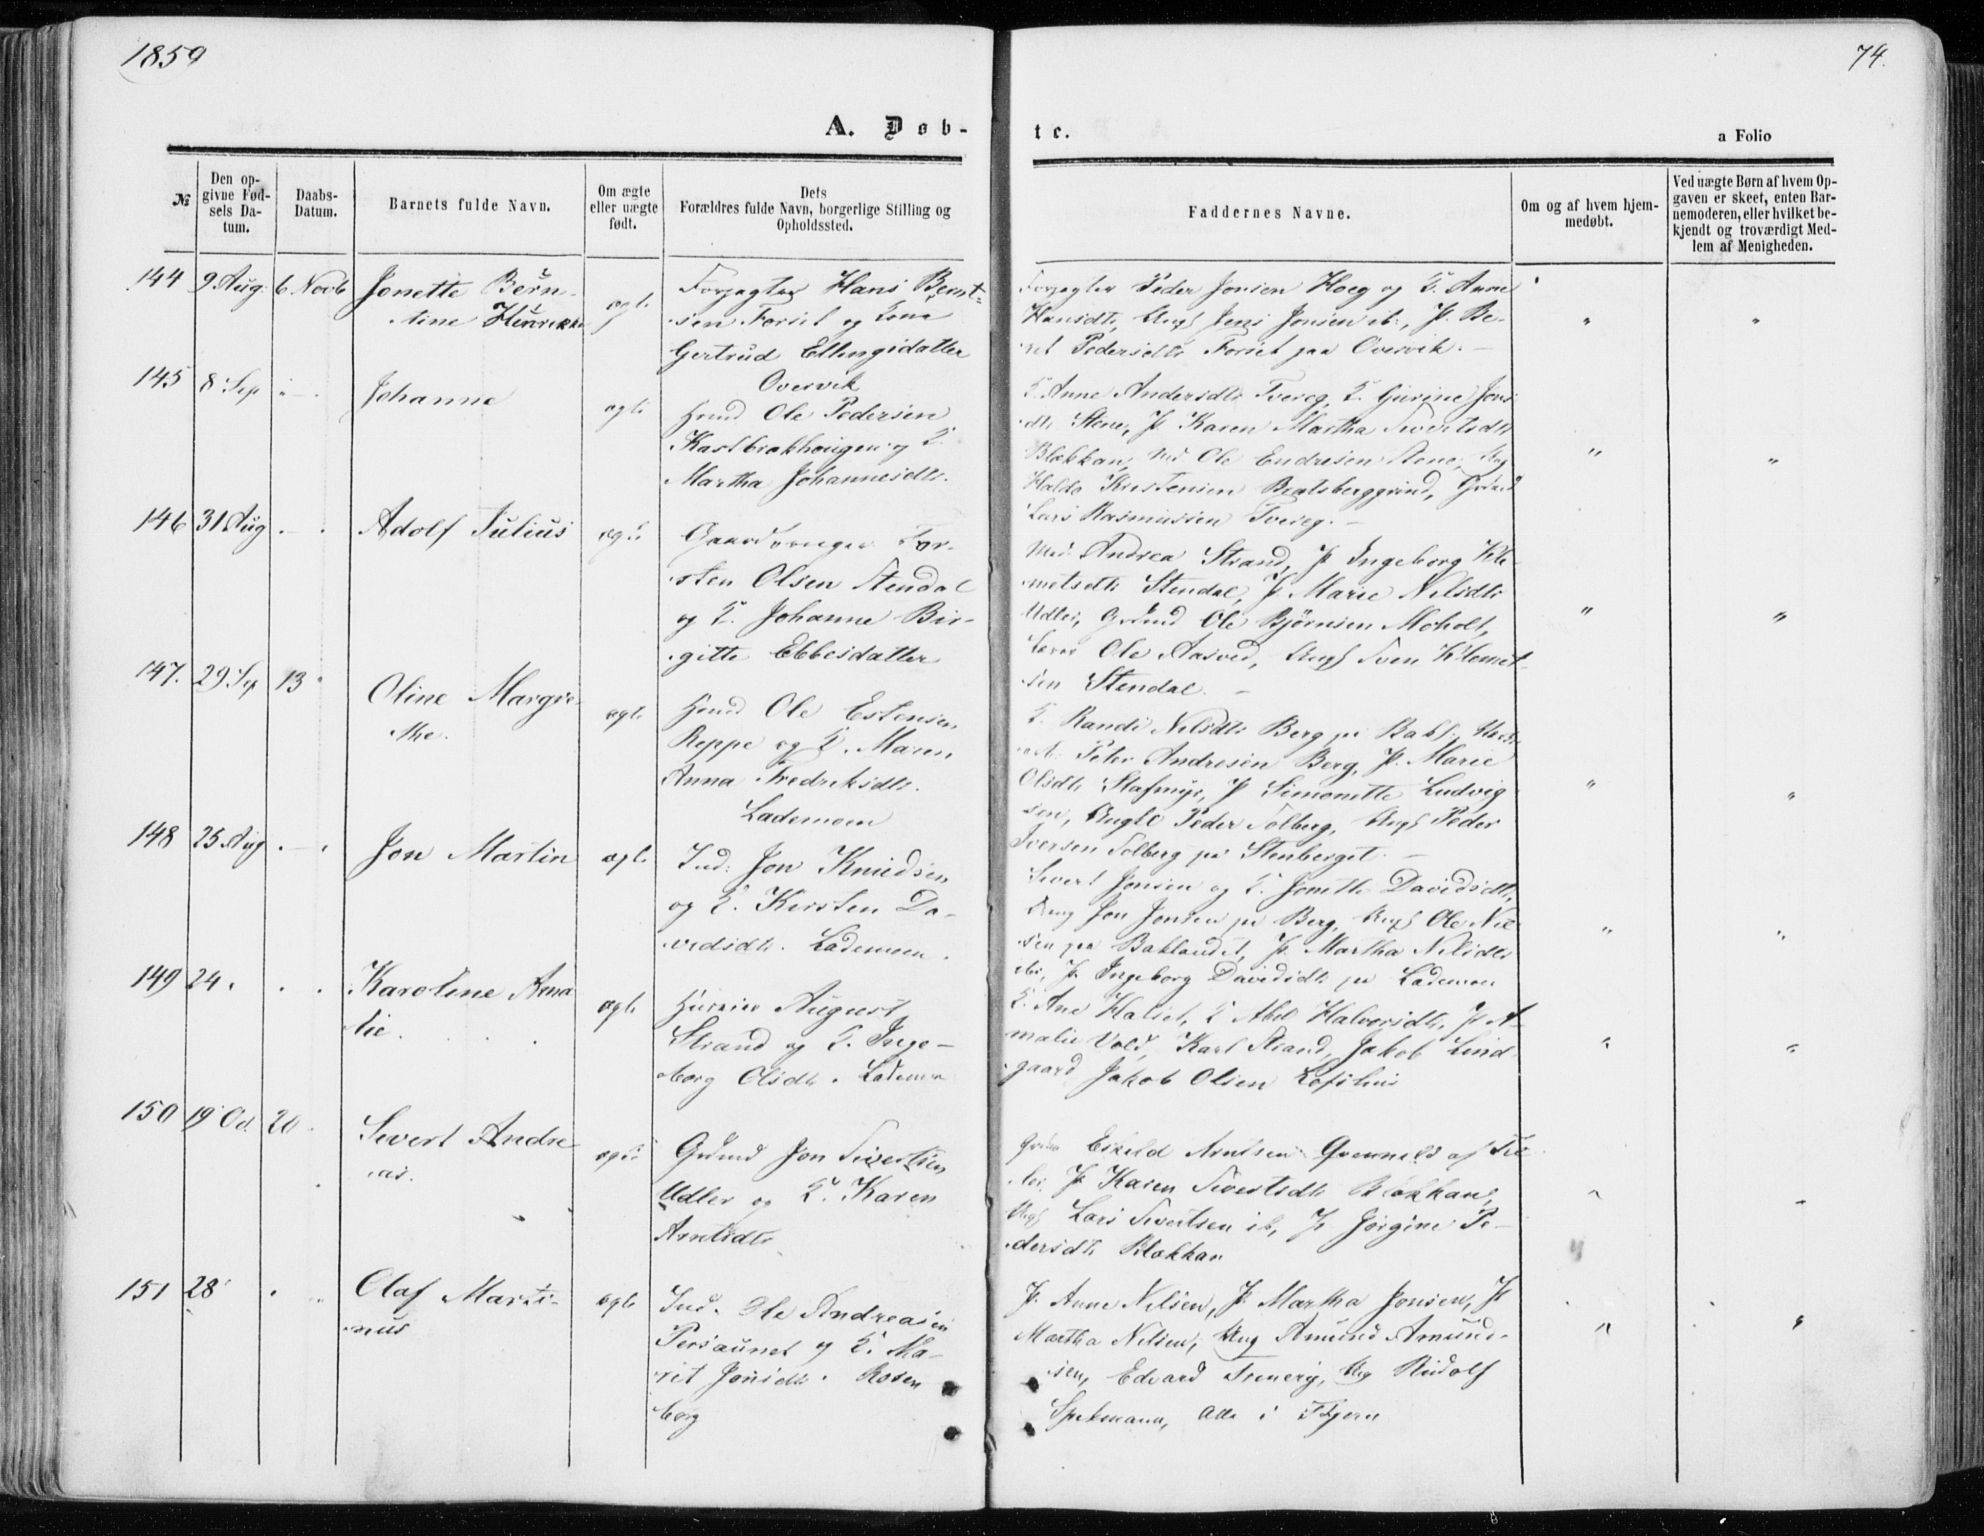 1859
74.
A. Døb-
te.
a Folio
№
Den op-
givne Fød-
sels Da-
tum.
Daabs-
Datum.
Barnets fulde Navn.
Om ægte
eller uægte
født.
Dets
Forældres fulde Navn, borgerlige Stilling og
Opholdssted.
Faddernes Navne.
Om og af hvem hjem-
medøbt.
Ved uægte Børn af hvem Op-
gaven er skeet, enten Bar-
nemoderen, eller hvilket be-
kjendt og troværdigt Med-
lem af Menigheden.
144 9 Aug. 6 Novb
Jonette Bern-
tine Henrikke
ægte
Forpagter Hans Bernt-
sen Forset og Kone
Gertrud Ellingsdatter
Overvik
Forpagter Peder Jonsen Hoeg og K. Anne
Hansdtr, Ungk Jens Jonsen ib., P. Be-
ret Pedersdtr Forset paa Overvik. —
" "
145 8 Sep " — .
Johanne
ægte
Huusmd Ole Pedersen
og K.
Martha Johannesdtr.
K. Anne Andersdtr Tvereg, K. Gurine Jons-
dtr Stene, P. Karen Martha Sivertsdtr
Blekkan, Ole Endresen Stene,
Kristensen
Lars Rasmussen Tvereg. —
" "
146 31 Aug . — .
Adolf Julius
ægte
Gaardbruger Tor-
sten Olsen Stendal
og K. Johanne Bir-
gitte Ebbesdatter
Mad. Andrea Strand, P. Ingeborg Kle-
metsdtr Stendal, P. Marie Nilsdtr
Udler, Grdmd Ole Bjørnsen Moholt,
Ole Aasved, Ungk Sven Klemet-
sen Stendal. —
" "
147. 29 Sep 13 "
Oline Margre-
the.
ægte
Huusmd Ole Estensen
Reppe og K. Maren
Anna Fredriksdtr.
Lademoen
K. Randi Nilsdtr Berg pr Bakl.
Peter Andresen Berg, P. Marie
Olsdtr P Simonette Ludvig-
sen, Ungk Peder Solberg, Ungk Peder
Iversen Solberg på Stenberget. —
" "
148 25 Aug . — .
Jon Martin
ægte
Ind. Jon Knudsen
og K. Kirsten Da-
vidsdtr. Lademoen.
Sivert Jonsen og K. Jonette Davidsdtr,
Ung Jon Jonsen pr Berg, Ungk Ole Niel-
sen paa Baklandet, P. Martha Nilsdtr
ibi, P. Ingeborg Davidsdtr pr Lademoen
" "
149 24 . . .
Karoline Ama-
lie.
ægte
August
Strand og K. Inge-
borg Olsdtr. Lademoen
K. Ane Halset, K Abel Halvorsdtr, P A-
malie Vold, Karl Strand, Jakob Lind-
gaard Jakob Olsen
" "
150 19 Oct. 20 .
Sivert Andre
as.
ægte
Grdmd Jon Sivertsen
Udler og K. Karen
Arntsdtr
Eskild Arntsen af Til-
ler, P. Karen Sivertsdtr Blekkan,
Ungk Lars Sivertsen ib, P. Jørgine Pe-
dersdtr Blekkan
" "
151 28 . "
Olaf Marti-
nus
ægte
Ind. Ole Andreasen
Persaunet og K. Ma-
rit Jonsdtr. Rosen
borg
P. Anne Nilsen, P. Martha Jonsen, P
Martha Nilsen, Ung Amund Amund-
sen, Edvard Ung Rudolf
Spekmann, alle i
" "